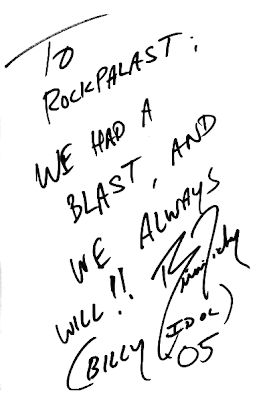 TO
ROCKPALAST:
WE HAD A
BLAST, AND
WE ALWAYS
WILL!!
(BILLY IDOL)
05